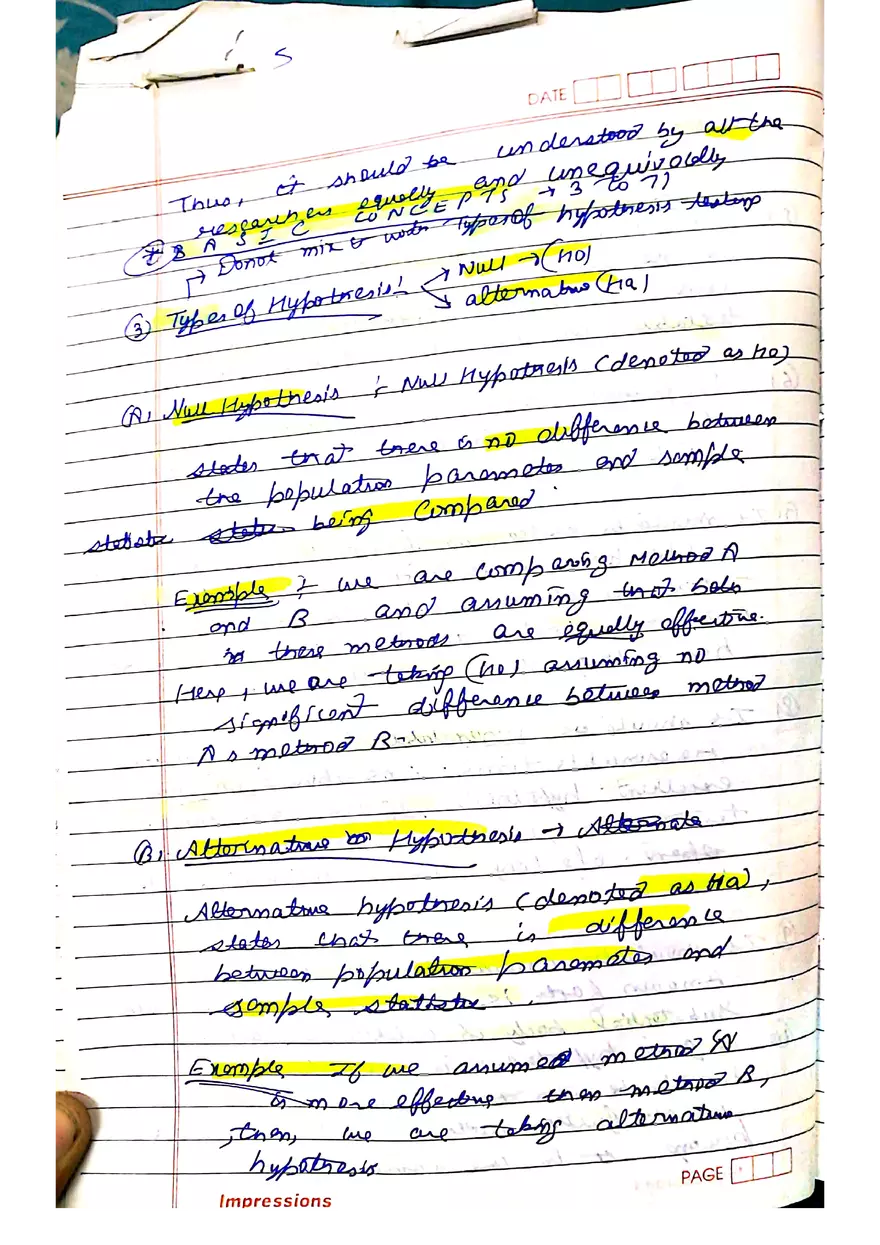 S
DATE
Thus, it should be understood by all the
researchers equally and unequivoldly
BASIC CONCEPTS → 3 to 7)
→ Donot mix it with Types of hypothesis testing
③ Types of Hypothesis: → Null → (H0)
→ alternative (Ha)
(A) Null Hypothesis :- Null Hypothesis (denoted as H0)
states that there is no difference between
the population parameter and sample
statistic being compared.
Example :- we are comparing Method A
and B and assuming that both
these methods are equally effective.
Here, we are taking (H0) assuming no
significant difference between method
A & method B-
(B) Alternative Hypothesis → Alternate
Alternative hypothesis (denoted as Ha),
states that there is difference
between population parameter and
sample statistic.
Example If we assumed method 'A'
is more effective then method B,
then, we are taking alternative
hypothesis
PAGE
Impressions